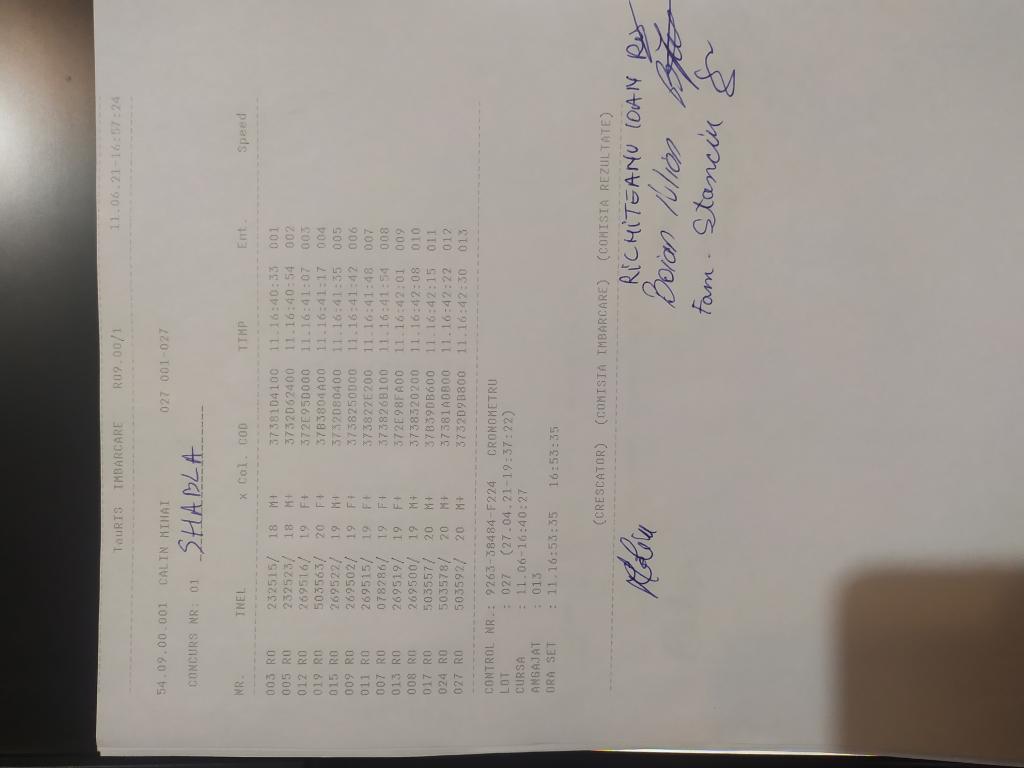 TauRIS IMBARCARE R09.00/1 11.06.21-16:57:24
54.09.00.001 CALIN MIHAI 027 001-027
CONCURS NR: 01 SHABLA
NR. INEL x Col. COD TIMP Ent. Speed
003 RO 232515/ 18 M+ 37381D4100 11.16:40:33 001
005 RO 232523/ 18 M+ 3732D62400 11.16:40:54 002
012 RO 269516/ 19 F+ 372E95D000 11.16:41:07 003
019 RO 503563/ 20 F+ 37B3804A00 11.16:41:17 004
015 RO 269522/ 19 M+ 3732D80400 11.16:41:35 005
009 RO 269502/ 19 F+ 3738250D00 11.16:41:42 006
011 RO 269515/ 19 F+ 373822E200 11.16:41:48 007
007 RO 078286/ 19 F+ 373826B100 11.16:41:54 008
013 RO 269519/ 19 F+ 372E98FA00 11.16:42:01 009
008 RO 269500/ 19 M+ 3738320200 11.16:42:08 010
017 RO 503557/ 20 M+ 37B39DB600 11.16:42:15 011
024 RO 503578/ 20 M+ 37381ADB00 11.16:42:22 012
027 RO 503592/ 20 M+ 3732D9B800 11.16:42:30 013
CONTROL NR.: 9263-38484-F224 CRONOMETRU
LOT : 027 (27.04.21-19:37:22)
CURSA : 11.06-16:40:27
ANGAJAT : 013
ORA SET : 11.16:53:35 16:53:35
(CRESCATOR) (COMISIA IMBARCARE) (COMISIA REZULTATE)
RICHITEANU IOAN
Boian Iulian
Fam. Stanciu